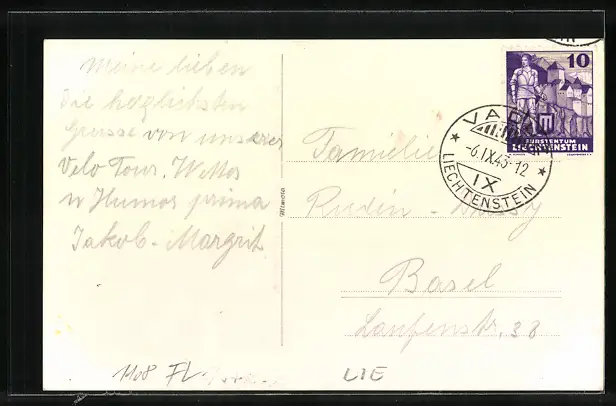 Meine lieben
die herzlichsten
Grüsse von unserer
Velo Tour. Wetter
u Humor prima
Jakob - Margrit
Familie
Rudin -
Basel
Laufenstr. 38
10
FÜRSTENTUM
LIECHTENSTEIN
VADUZ
-6.IX.43-12
IX
LIECHTENSTEIN
1108 FL
LIE